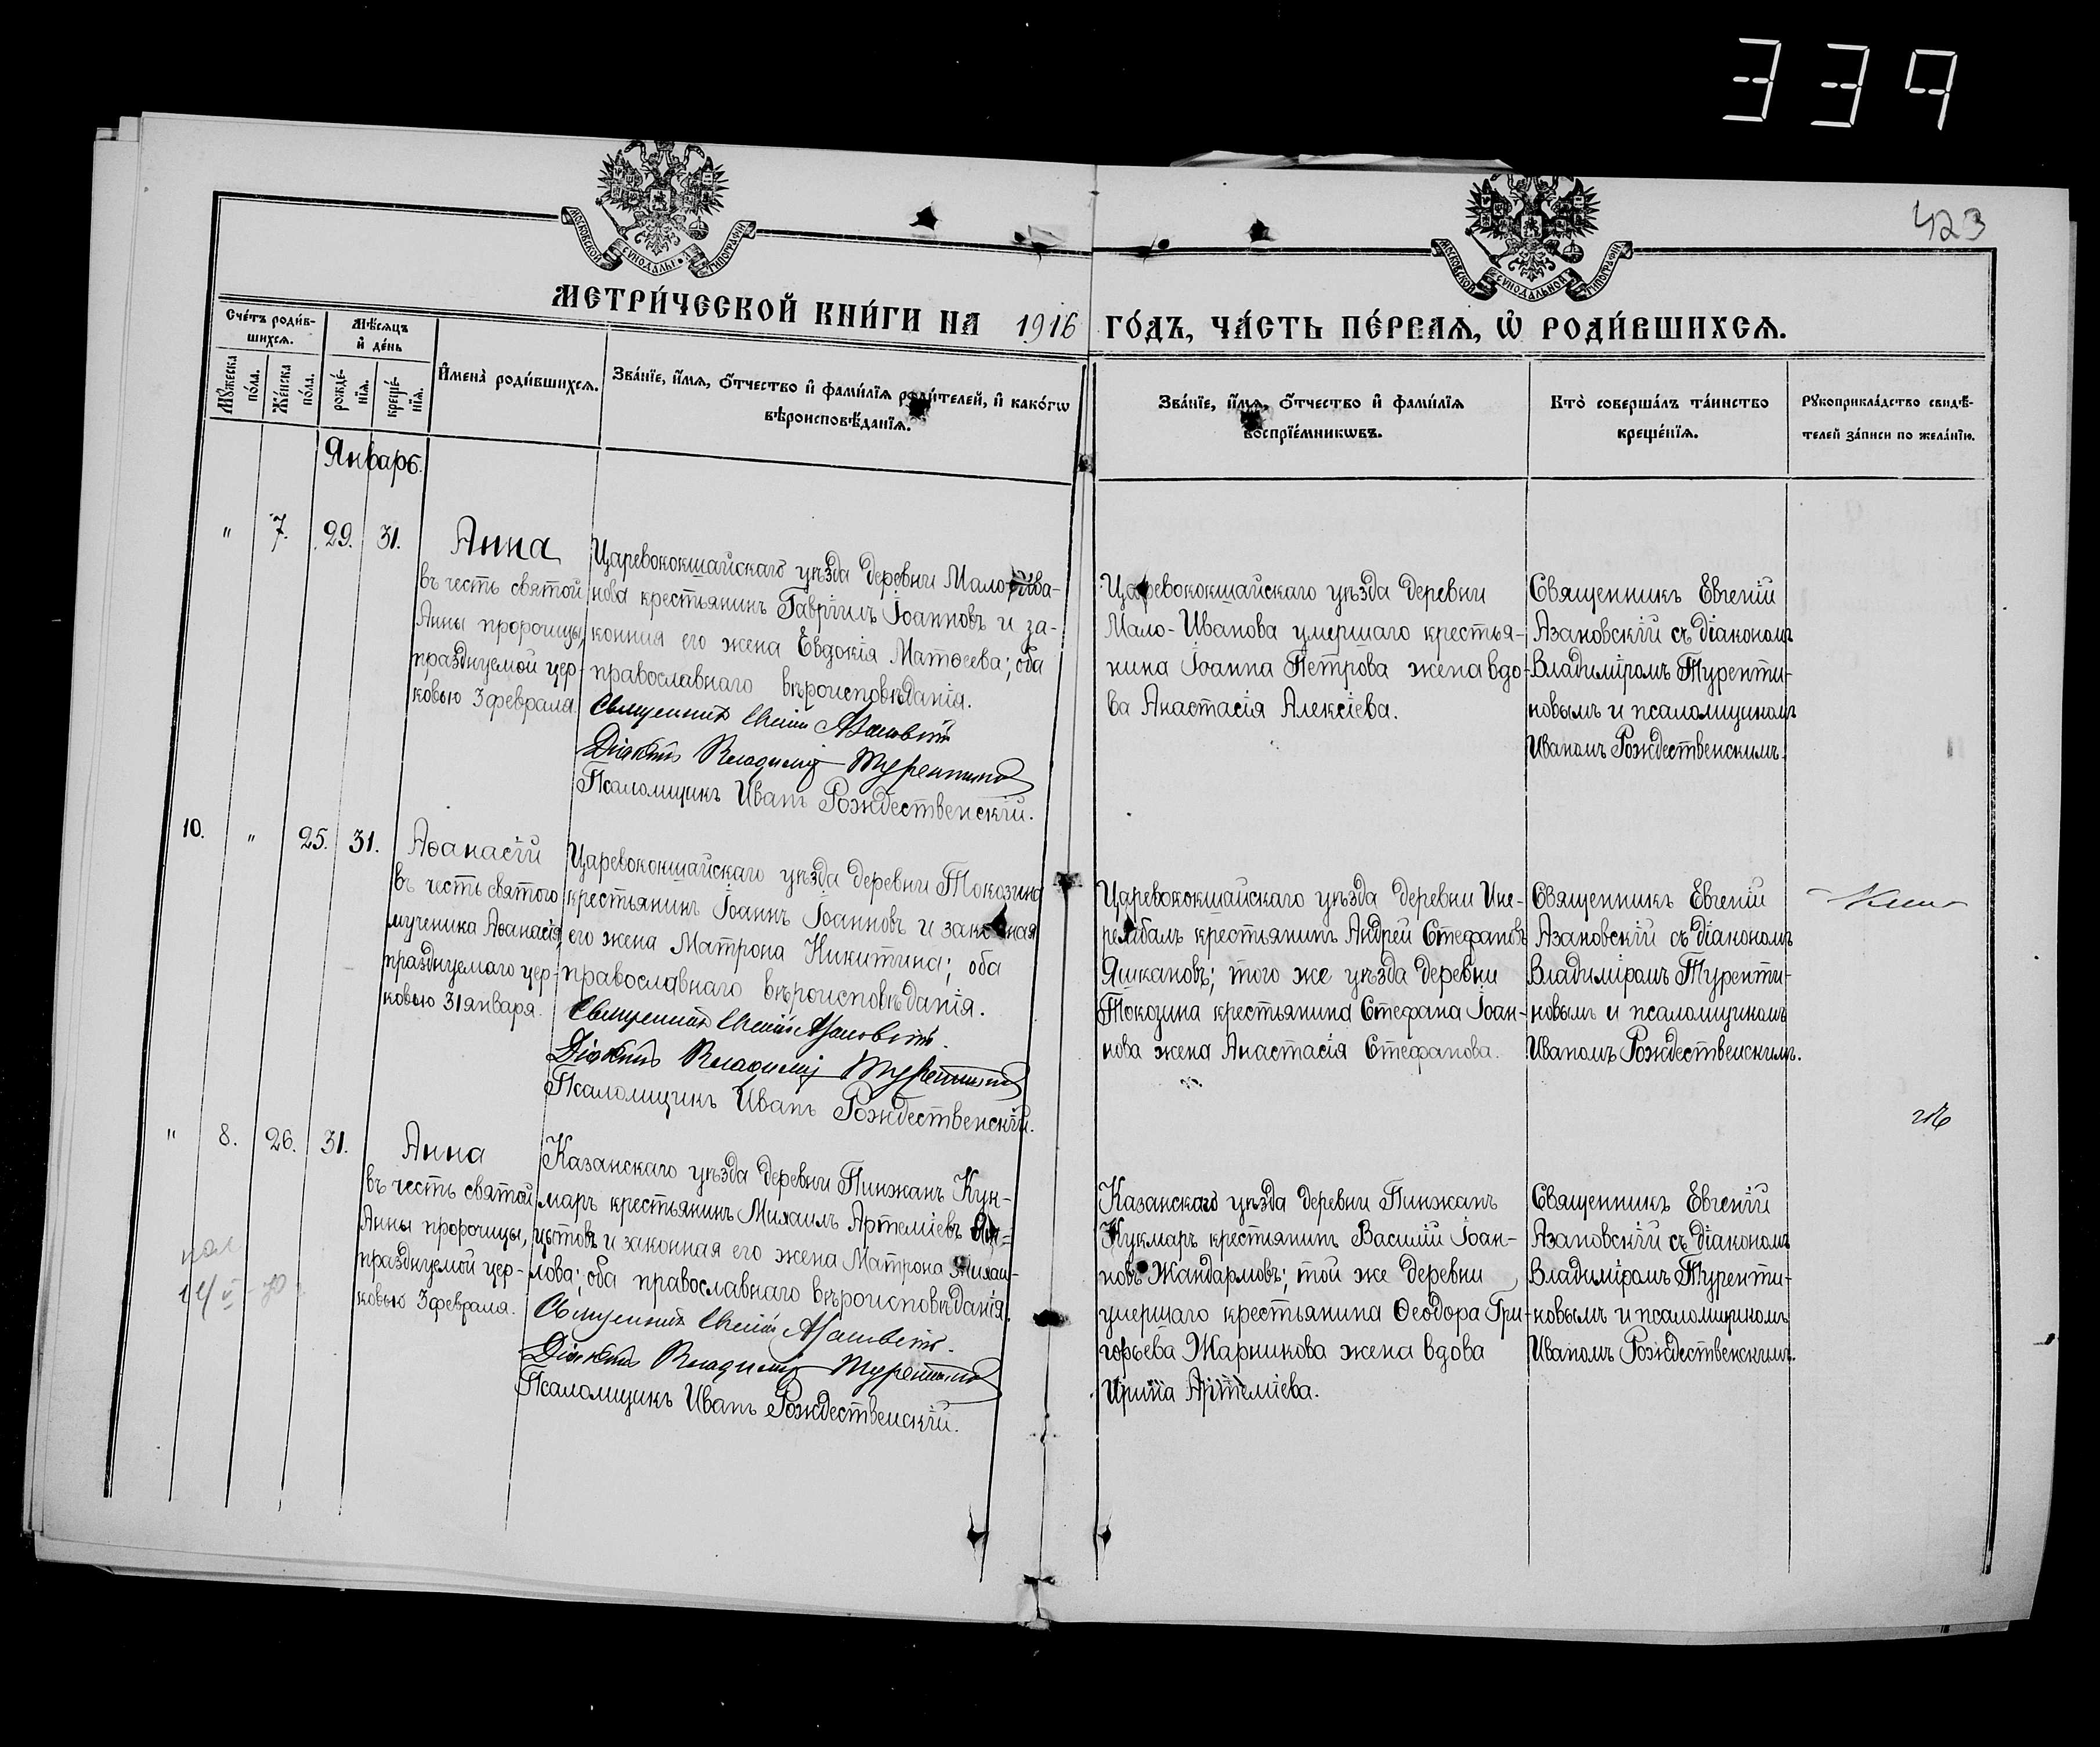 339
423
МОСКОВСКОЙ СѴНОДАЛЬНОЙ ТИПОГРАФІИ
МОСКОВСКОЙ СѴНОДАЛЬНОЙ ТИПОГРАФІИ
МЕТРИ́ЧЕСКОЙ КНИ́ГИ НА 1916 ГО́ДЪ, ЧА́СТЬ ПЕ́РВАѦ, Ѡ҆ РОДИ́ВШИХСѦ.
Сче́тъ роди́в-
шихсѧ.
Мꙋ́жеска по́ла.
Же́нска по́ла.
Мѣ́сѧцъ
и҆ де́нь
рожде́-
нїѧ.
креще́-
нїѧ.
И҆мена̀ роди́вшихсѧ.
Зва́нїе, и҆́мѧ, ѻ҆́тчество и҆ фами́лїѧ роди́телей, и҆ како́гѡ
вѣроисповѣ́данїѧ.
Зва́нїе, и҆́мѧ, ѻ҆́тчество и҆ фами́лїѧ
воспрїе́мникѡвъ.
Кто̀ соверша́лъ та́инство
креще́нїѧ.
Рꙋкоприкла́дство свидѣ́-
телей за́писи по жела́нїю.
Январь.
" 7. 29. 31.
Анна
въ честь святой
Анны пророчицы,
празднуемой цер-
ковью 3 февраля.
Царевококшайскаго уѣзда деревни Мало-Ива-
нова крестьянинъ Гавріилъ Іоанновъ и за-
конная его жена Евдокія Матѳеева; оба
православнаго вѣроисповѣданія.
Священникъ Евгеній Азановскій
Діаконъ Владиміръ Турентиновъ
Псаломщикъ Иванъ Рождественскій.
Царевококшайскаго уѣзда деревни
Мало-Иванова умершаго крестья-
нина Іоанна Петрова жена вдо-
ва Анастасія Алексіева.
Священникъ Евгеній
Азановскій съ діакономъ
Владиміромъ Туренти-
новымъ и псаломщикомъ
Иваномъ Рождественскимъ.
10. " 25. 31.
Аѳанасій
въ честь святого
мученика Аѳанасія
празднуемаго цер-
ковью 31 января.
Царевококшайскаго уѣзда деревни Токозина
крестьянинъ Іоаннъ Іоанновъ и законная
его жена Матрона Никитина; оба
православнаго вѣроисповѣданія.
Священникъ Евгеній Азановскій.
Діаконъ Владиміръ Турентиновъ
Псаломщикъ Иванъ Рождественскій.
Царевококшайскаго уѣзда деревни Ине-
релибалъ крестьянинъ Андрей Стефановъ
Яшкановъ; того же уѣзда деревни
Токозина крестьянина Стефана Іоан-
нова жена Анастасія Стефанова.
Священникъ Евгеній
Азановскій съ діакономъ
Владиміромъ Туренти-
новымъ и псаломщикомъ
Иваномъ Рождественскимъ.
" 8. 26. 31.
Анна
въ честь святой
Анны пророчицы,
празднуемой цер-
ковью 3 февраля.
Казанскаго уѣзда деревни Пинжанъ Кук-
маръ крестьянинъ Михаилъ Артеміевъ
и законная его жена Матрона Михаи-
лова; оба православнаго вѣроисповѣданія.
Священникъ Евгеній Азановскій.
Діаконъ Владиміръ Турентиновъ
Псаломщикъ Иванъ Рождественскій.
Казанскаго уѣзда деревни Пинжанъ
Кукмаръ крестьянинъ Василій Іоан-
новъ Жандармовъ; той же деревни
умершаго крестьянина Ѳеодора Гри-
горьева Жарникова жена вдова
Ирина Артеміева.
Священникъ Евгеній
Азановскій съ діакономъ
Владиміромъ Туренти-
новымъ и псаломщикомъ
Иваномъ Рождественскимъ.